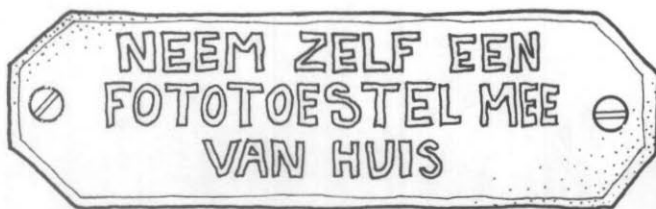 NEEM ZELF EEN
FOTOTOESTEL MEE
VAN HUIS